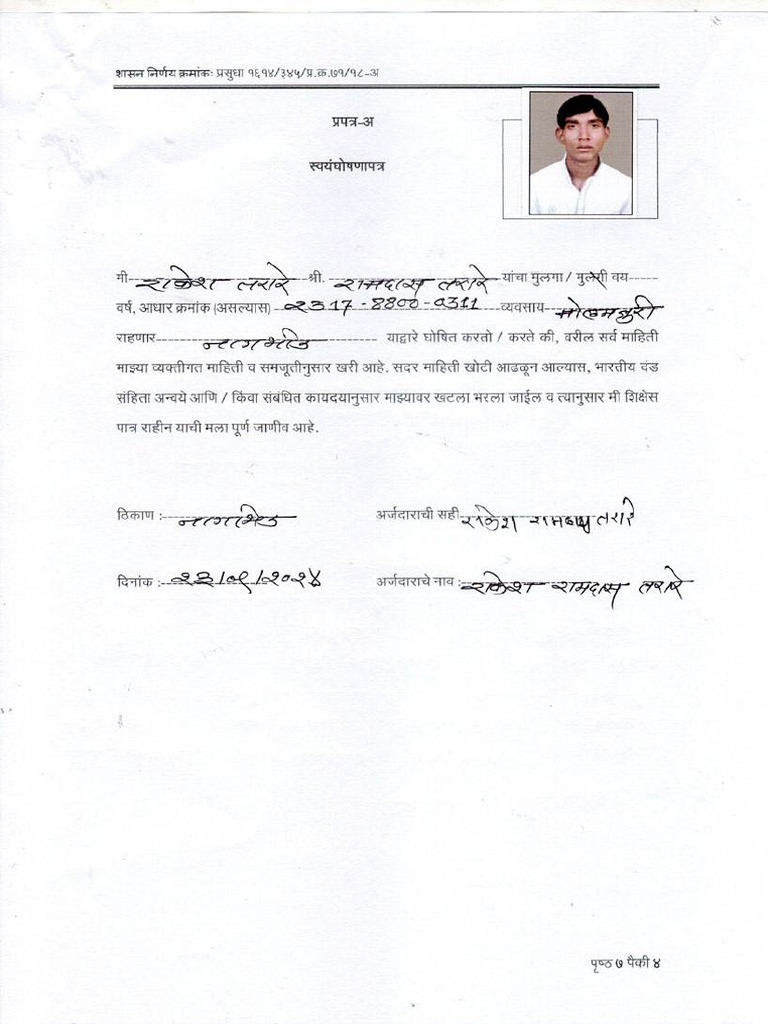 शासन निर्णय क्रमांकः प्रसुधा १६१४/३४५/प्र.क्र.७१/१८-अ
प्रपत्र-अ
स्वयंघोषणापत्र
मी राकेश तरारे श्री. रामदास तरारे यांचा मुलगा / मुलगी वय
वर्ष, आधार क्रमांक (असल्यास) २317-8800-0311 व्यवसाय मोलमजुरी
राहणार नागभीड याद्वारे घोषित करतो / करते की, वरील सर्व माहिती
माझ्या व्यक्तीगत माहिती व समजूतीनुसार खरी आहे. सदर माहिती खोटी आढळून आल्यास, भारतीय दंड
संहिता अन्वये आणि / किंवा संबंधित कायदयानुसार माझ्यावर खटला भरला जाईल व त्यानुसार मी शिक्षेस
पात्र राहीन याची मला पूर्ण जाणीव आहे.
ठिकाण : नागभिड अर्जदाराची सही राकेश रामदास तरारे
दिनांक : २३/०९/२०२४ अर्जदाराचे नाव : राकेश रामदास तरारे
पृष्ठ ७ पैकी ४